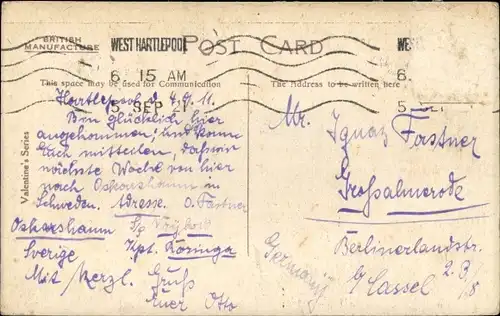 BRITISH
MANUFACTURE
WEST HARTLEPOOL
POST CARD
WES
6. 15 AM
6.
This space may be used for Communication
The Address to be written here
15 SEP 21
5 21
Valentine's Series
Hartlepool, 4. 9.
Bin glücklich hier
angekommen, und kann
Euch mitteilen, dass wir
nächste Woche von hier
nach Oskarshamn in
Schweden. Adresse. O. Farstner
Oskarshamn
Sverige
Kpt.
Mit herzl. Gruß
Euer Otto
Mr.
Ignaz Farstner
Großalmerode
Berlinerlandstr.
Germany
b/Cassel